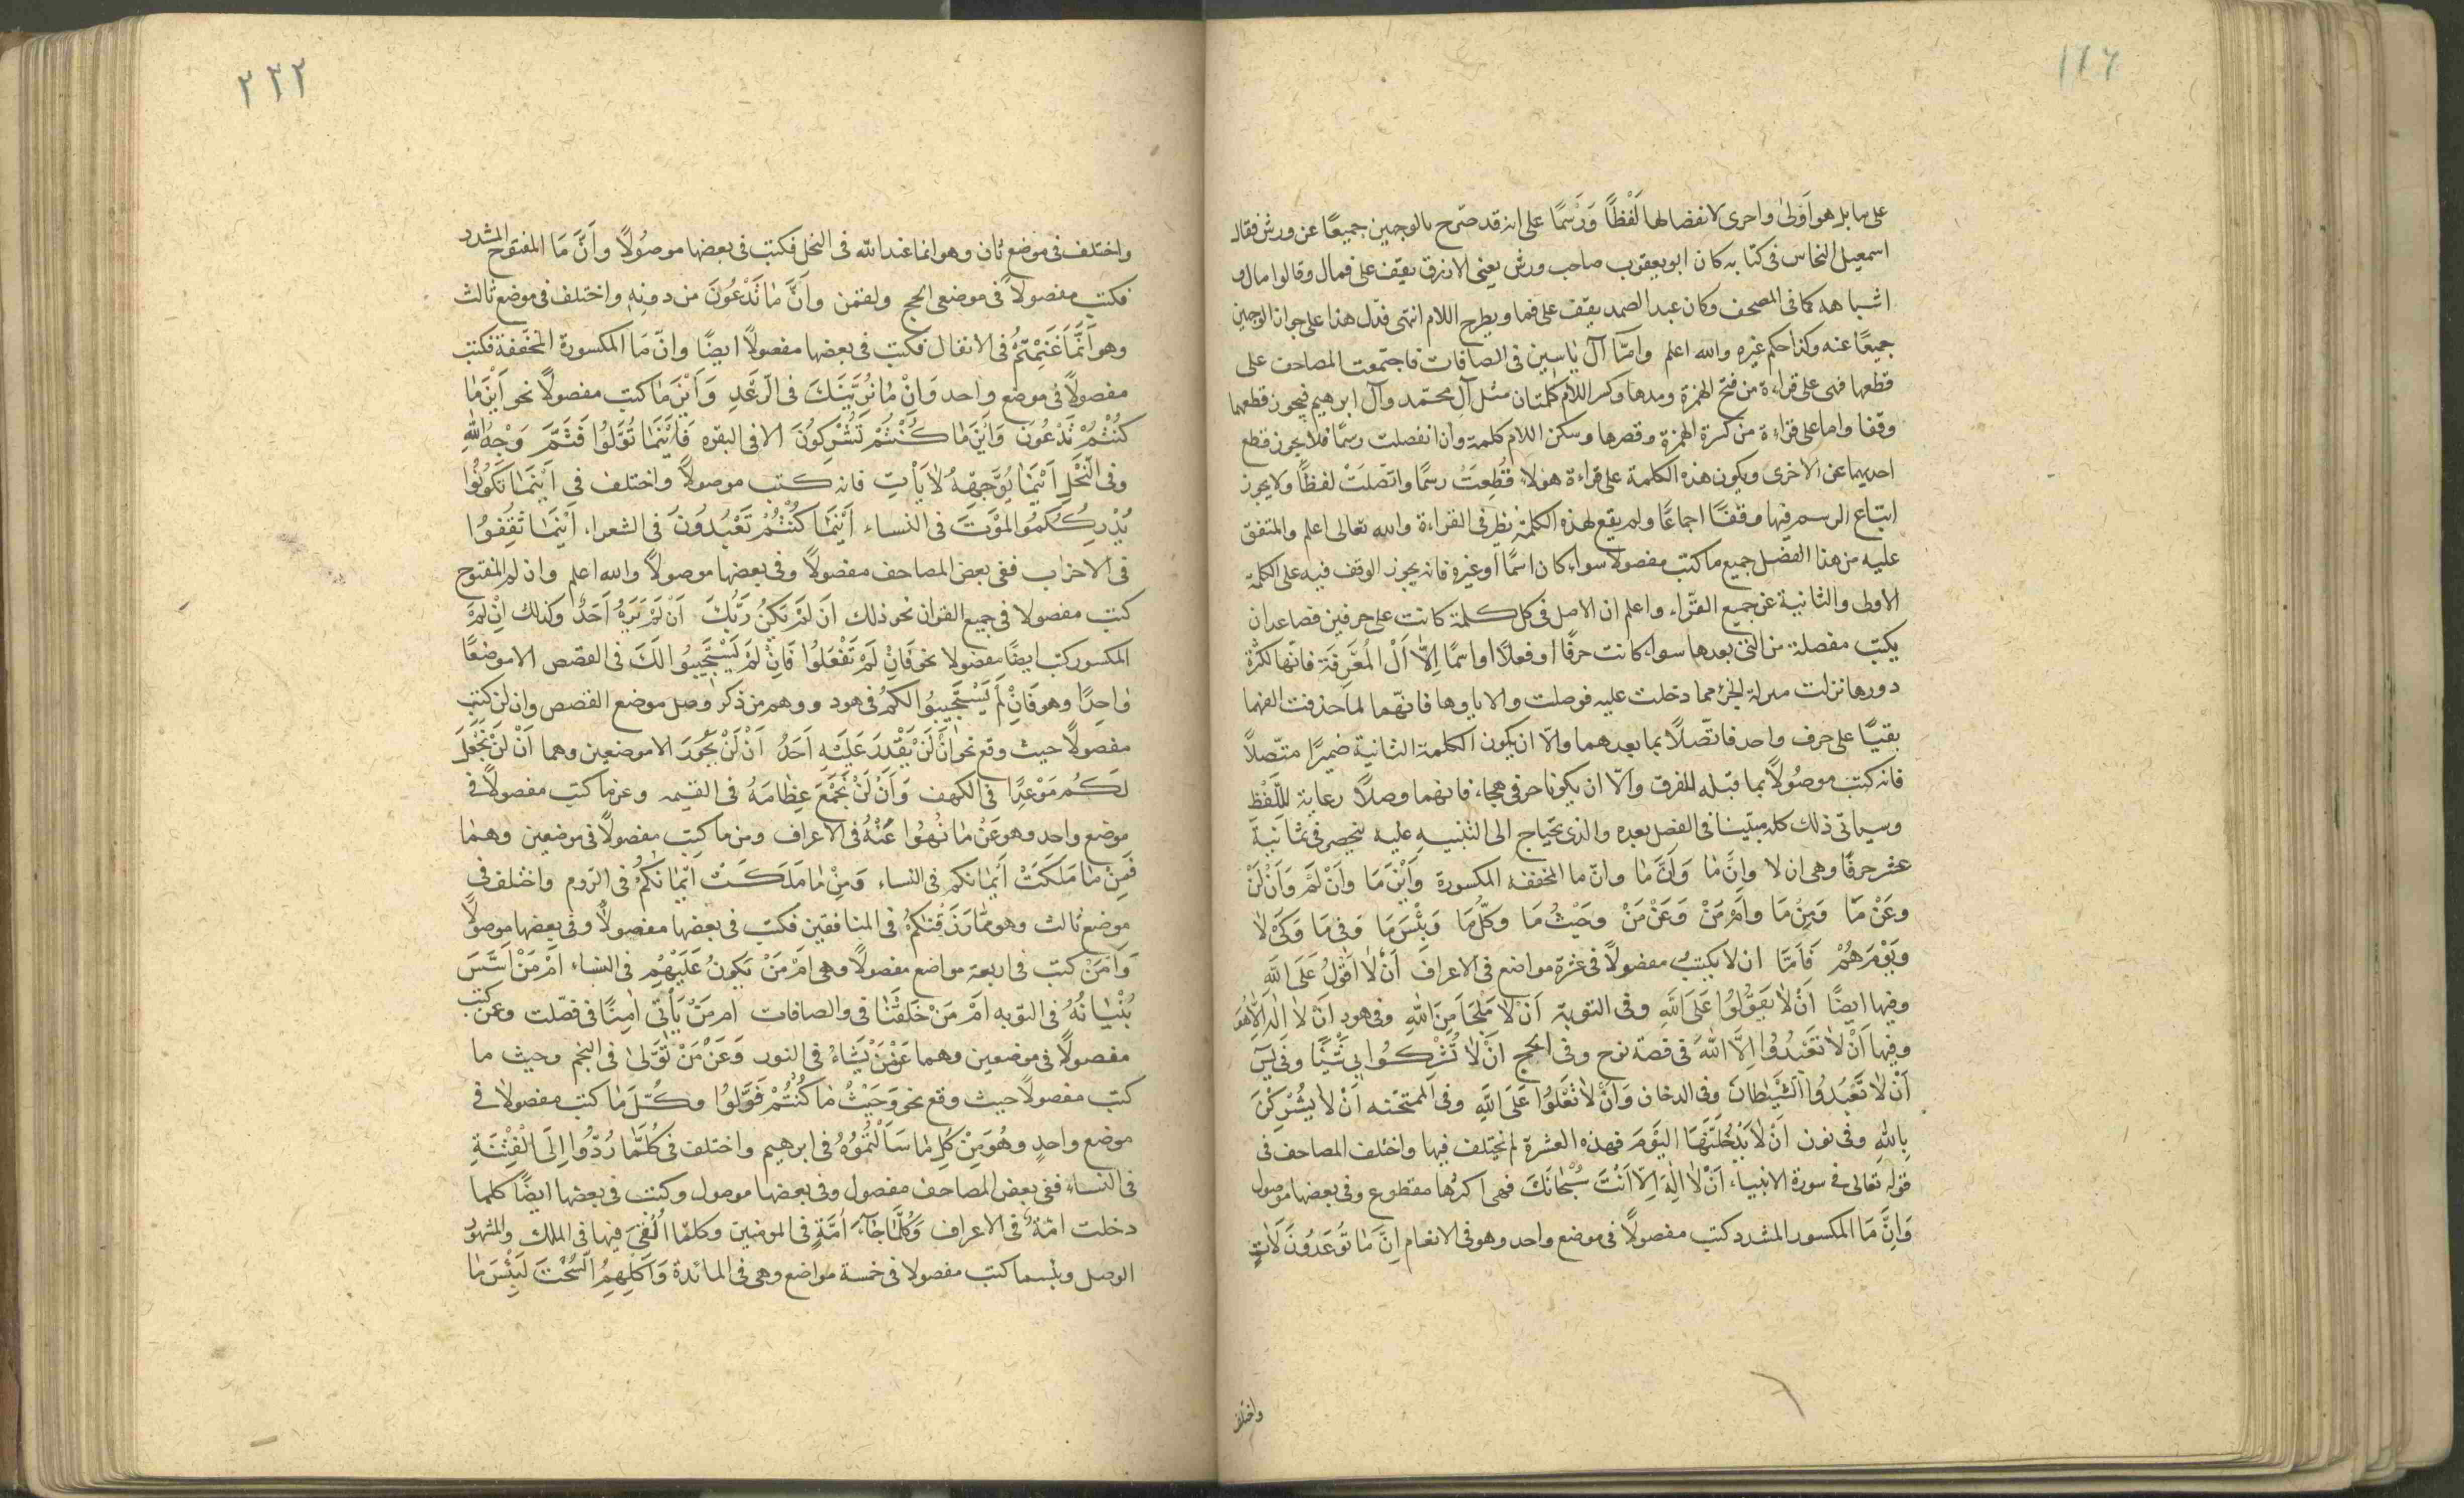 ١٢٦
على ما بل هو اَولىٰ واحرى لانفصالها لَفْظًا وَرَسمًا على انه قد صرّح بالوجهين جميعًا عن ورش فقال
اسمعيل النخاس فى كتابه كان ابو يعقوب صاحب ورش يعنى الازرق يقف على فمال وقالوا مال و
اشباهه كما فى المصحف وكان عبد الصمد يقف على فما ويطرح اللام انتهى فدل هذا على جواز الوجهين
جميعًا عنه وكذا حكم غيره والله اعلم وامّا آل ياسين فى الصافات فاجتمعت المصاحف على
قطعها فهى على قراءة من فتح الهمزة ومدها وكسر اللام كلمتان مثل آل محمّد وآل ابرهيم فيجوز قطعهما
وقفا واما على قراءة من كسرة الهمزة وقصرها وسكن اللام كلمة وان انفصلت رسمًا فلا يجوز قطع
احديهما عن الاخرى ويكون هذه الكلمة على قراءة هؤلاء قُطِعَتْ رسمًا واتّصلَتْ لفظًا ولا يجوز
اتباع الرسم فيها وقفًا اجماعًا ولم يقع لهذه الكلمة نظير فى القراءة والله تعالى اعلم والمتفق
عليه من هذا الفصل جميع ما كتب مفصولا سواء كان اسمًا او غيره فانه يجوز الوقف فيه على الكلمة
الاولى والثانية عن جميع القرّاء واعلم ان الاصل فى كل كلمة كانت على حرفين فصاعدا ان
يكتب مفصلة من التى بعدها سواء كانت حرفًا او فعلاً او اسمًا اِلاّ اَلْ المُعَرِفَة فانها لكثرة
دورها نزلت منزلة الجزء مما دخلت عليه فوصلت والا ياوها فانّهما لما حذفت الفهما
بقيًا على حرف واحد فاتّصلاً بما بعدهما والاّ ان يكون الكلمة الثانية ضميرًا متّصلاً
فانه كتب موصُولاً بما قبله للفرق والاّ ان يكونا حرفى هجاء فانهما وصلاً رعاية لِلّفْظِ
وسياتى ذلك كله مبيّنا فى الفصل بعده والذى يحتاج الى التنبيه عليه ينحصر فى ثمانية
عشر حرفًا وهى ان لا وانّ مَا وَاَنَّ مَا وانّ ما المخففه المكسورة وَاَيْنَ مَا وَاَنْ لَمْ وَاَنْ لَنْ
وعَنْ مَا وَمِنْ مَا واَمْ مَنْ وَعَنْ مَنْ وحَيْثُ مَا وكلُّ مَا وَبِئْسَ مَا وَفى مَا وَكَىْ لاٰ
وَيَوْمَ هُمْ فَاَمّا ان لا يكتب مفصولاً فى عشرة مواضع فى الاعراف اَنْ لاٰ اَقُولَ عَلَى اللهِ
وفيها ايضًا اَنْ لاٰ يَقُولُوا عَلَى اللهِ وفى التوبة اَنْ لاٰ مَلْجَأَ مِنَ اللهِ وفى هود اَنْ لاٰ اِلٰهَ اِلاّٰهُوَ
وفيها اَنْ لاٰ تَعْبُدُوا اِلاَّ اللهَ فى قصة نوح وفى الحج اَنْ لاٰ تُشْرِكْ بِى شَيْئًا وفى يسۤ
اَنْ لاٰ تَعْبُدُوا الشَّيْطَانَ وفى الدخان وَاَنْ لاٰ تَعْلُوا عَلَى اللهِ وفى الممتحنه اَنْ لاٰ يُشْرِكْنَ
بِاللهِ وفى نون اَنْ لاٰ يَدْخُلَنَّهَا اليَوْمَ فهذه العشرة لم يختلف فيها واختلف المصاحف فى
قوله تعالى فى سورة الانبياء اَنْ لاٰ اِلٰهَ اِلاّ اَنْتَ سُبْحَانَكَ فهى اكثرها مقطوع وفى بعضها موصول
وَاِنَّ مَا المكسور المشدد كتب مفصولاً فى موضع واحد وهو فى الانعام اِنَّ مٰا تُوعَدُونَ لَاٰتٍ
واختلف
٢٣٢
واختلف فى موضع ثان وهو انما عند الله فى النحل فكتب فى بعضها موصُولاً وأَنَّ مَا المفتوح المشدد
فكتب مفصولاً فى موضعى الحج ولقمن وأَنَّ مٰا تَدْعُونَ من دونِهِ واختلف فى موضع ثالث
وهو اَنَّمَا غَنِمْتُمْ فى الانفال فكتب فى بعضها مفصولاً ايضًا وانّ مَا المكسورة المخففة فكتب
مفصولاً فى موضع واحد وَاِنْ مٰا نُرِيَنَّكَ فى الرّعْدِ وَاَيْنَ مٰا كتب مفصولاً نحو اَيْنَ مٰا
كُنْتُمْ تَدْعُونَ وَاَيْنَ مٰا كُنْتُمْ تُشْرِكُونَ الا فى البقره فَاَيْنَمٰا تُوَلُّوا فَثَمَّ وَجْهُ اللهِ
وفى النَّحْلِ اَيْنَمٰا يُوَجِّهْهُ لاٰ يَأْتِ فانه كتب موصولاً واختلف فى اَيْنَمٰا تَكُونُوا
يُدْرِكْكُمُ المَوْتَ فى النساء اَيْنَمٰا كُنْتُمْ تَعْبُدُونَ فى الشعراء اَيْنَمٰا ثُقِفُوا
فى الاحزاب ففى بعض المصاحف مفصولاً وفى بعضها موصولاً والله اعلم وان لم المفتوح
كتب مفصولا فى جميع القران نحو ذلك اَنْ لَمْ يَكُنْ رَبُّكَ اَنْ لَمْ يَرَهُ اَحَدٌ وكذلك اِنْ لَمْ
المكسور كتب ايضًا مفصولا نحو فَاِنْ لَمْ تَفْعَلُوا فَاِنْ لَمْ يَسْتَجِيبُوا لَكَ فى القصص الا موضعًا
وٰاحِدًا وهو فَاِنْ لَمْ يَسْتَجِيبُوا لَكُمْ فى هود ووهم من ذكر وصل موضع القصص وان لن كتب
مفصولاً حيث وقع نحو اَنْ لَنْ يَقْدِرَ عَلَيْهِ اَحَدٌ اَنْ لَنْ يَحُورَ الا موضعين وهما اَنْ لَنْ نَجْعَلَ
لَكُمْ مَوْعِدًا فى الكهف وَاَنْ لَنْ نَجْمَعَ عِظٰامَهُ فى القيمه وعن ما كتب مفصولاً فى
موضع واحد وهو عَنْ مٰا نُهُوا عَنْهُ فى الاعراف ومن ما كتب مفصولاً فى موضعين وهما
فَمِنْ مٰا مَلَكَتْ أَيْمٰانكم فى النساء وَمِنْ مٰا مَلَكَتْ اَيْمٰانُكُمْ فى الرّوم واختلف فى
موضع ثالث وهو مِمّٰا رَزَقْنٰاكُمْ فى المنافقين فكتب فى بعضها مفصولاً وفى بعضها موصولاً
وَاَمْ مَنْ كتب فى اربعة مواضع مفصولاً وهى اَمْ مَنْ يَكُونُ عَلَيْهِمْ فى النساء اَمْ مَنْ اَسَّسَ
بُنْيٰانَهُ فى التوبه اَمْ مَنْ خَلَقْنٰا فى والصافات ام مَنْ يَأْتِى اٰمِنًا فى فصّلت وعن من كتب
مفصولاً فى موضعين وهما عَنْ مَنْ يَشَاءُ فى النور وَعَنْ مَنْ تَوَلّىٰ فى النجم وحيث ما
كتب مفصولاً حيث وقع نحو وَحَيْثُ مٰا كُنْتُمْ فَوَلّوُا وكُلَّ مٰا كتب مفصولاً فى
موضع واحدٍ وهُوَ مِنْ كُلِّ مٰا سَاَلْتُمُوهُ فى ابرهيم واختلف فى كُلَّمٰا رُدُّوا اِلَى الْفِتْنَةِ
فى النساء ففى بعض المصاحف مفصول وفى بعضها موصول وكتب فى بعضها ايضًا كلما
دخلت امّةٌ فى الاعراف وَكُلَّمٰا جٰاءَ اُمَّةٍ فى المومنين وكلمّا اُلْقِىَ فيها فى الملك والمشهور
الوصل وبئسما كتب مفصولا فى خمسة مواضع وهى فى المائدة وَاَكْلِهِمُ السُّحْتَ لَبِئْسَ مٰا